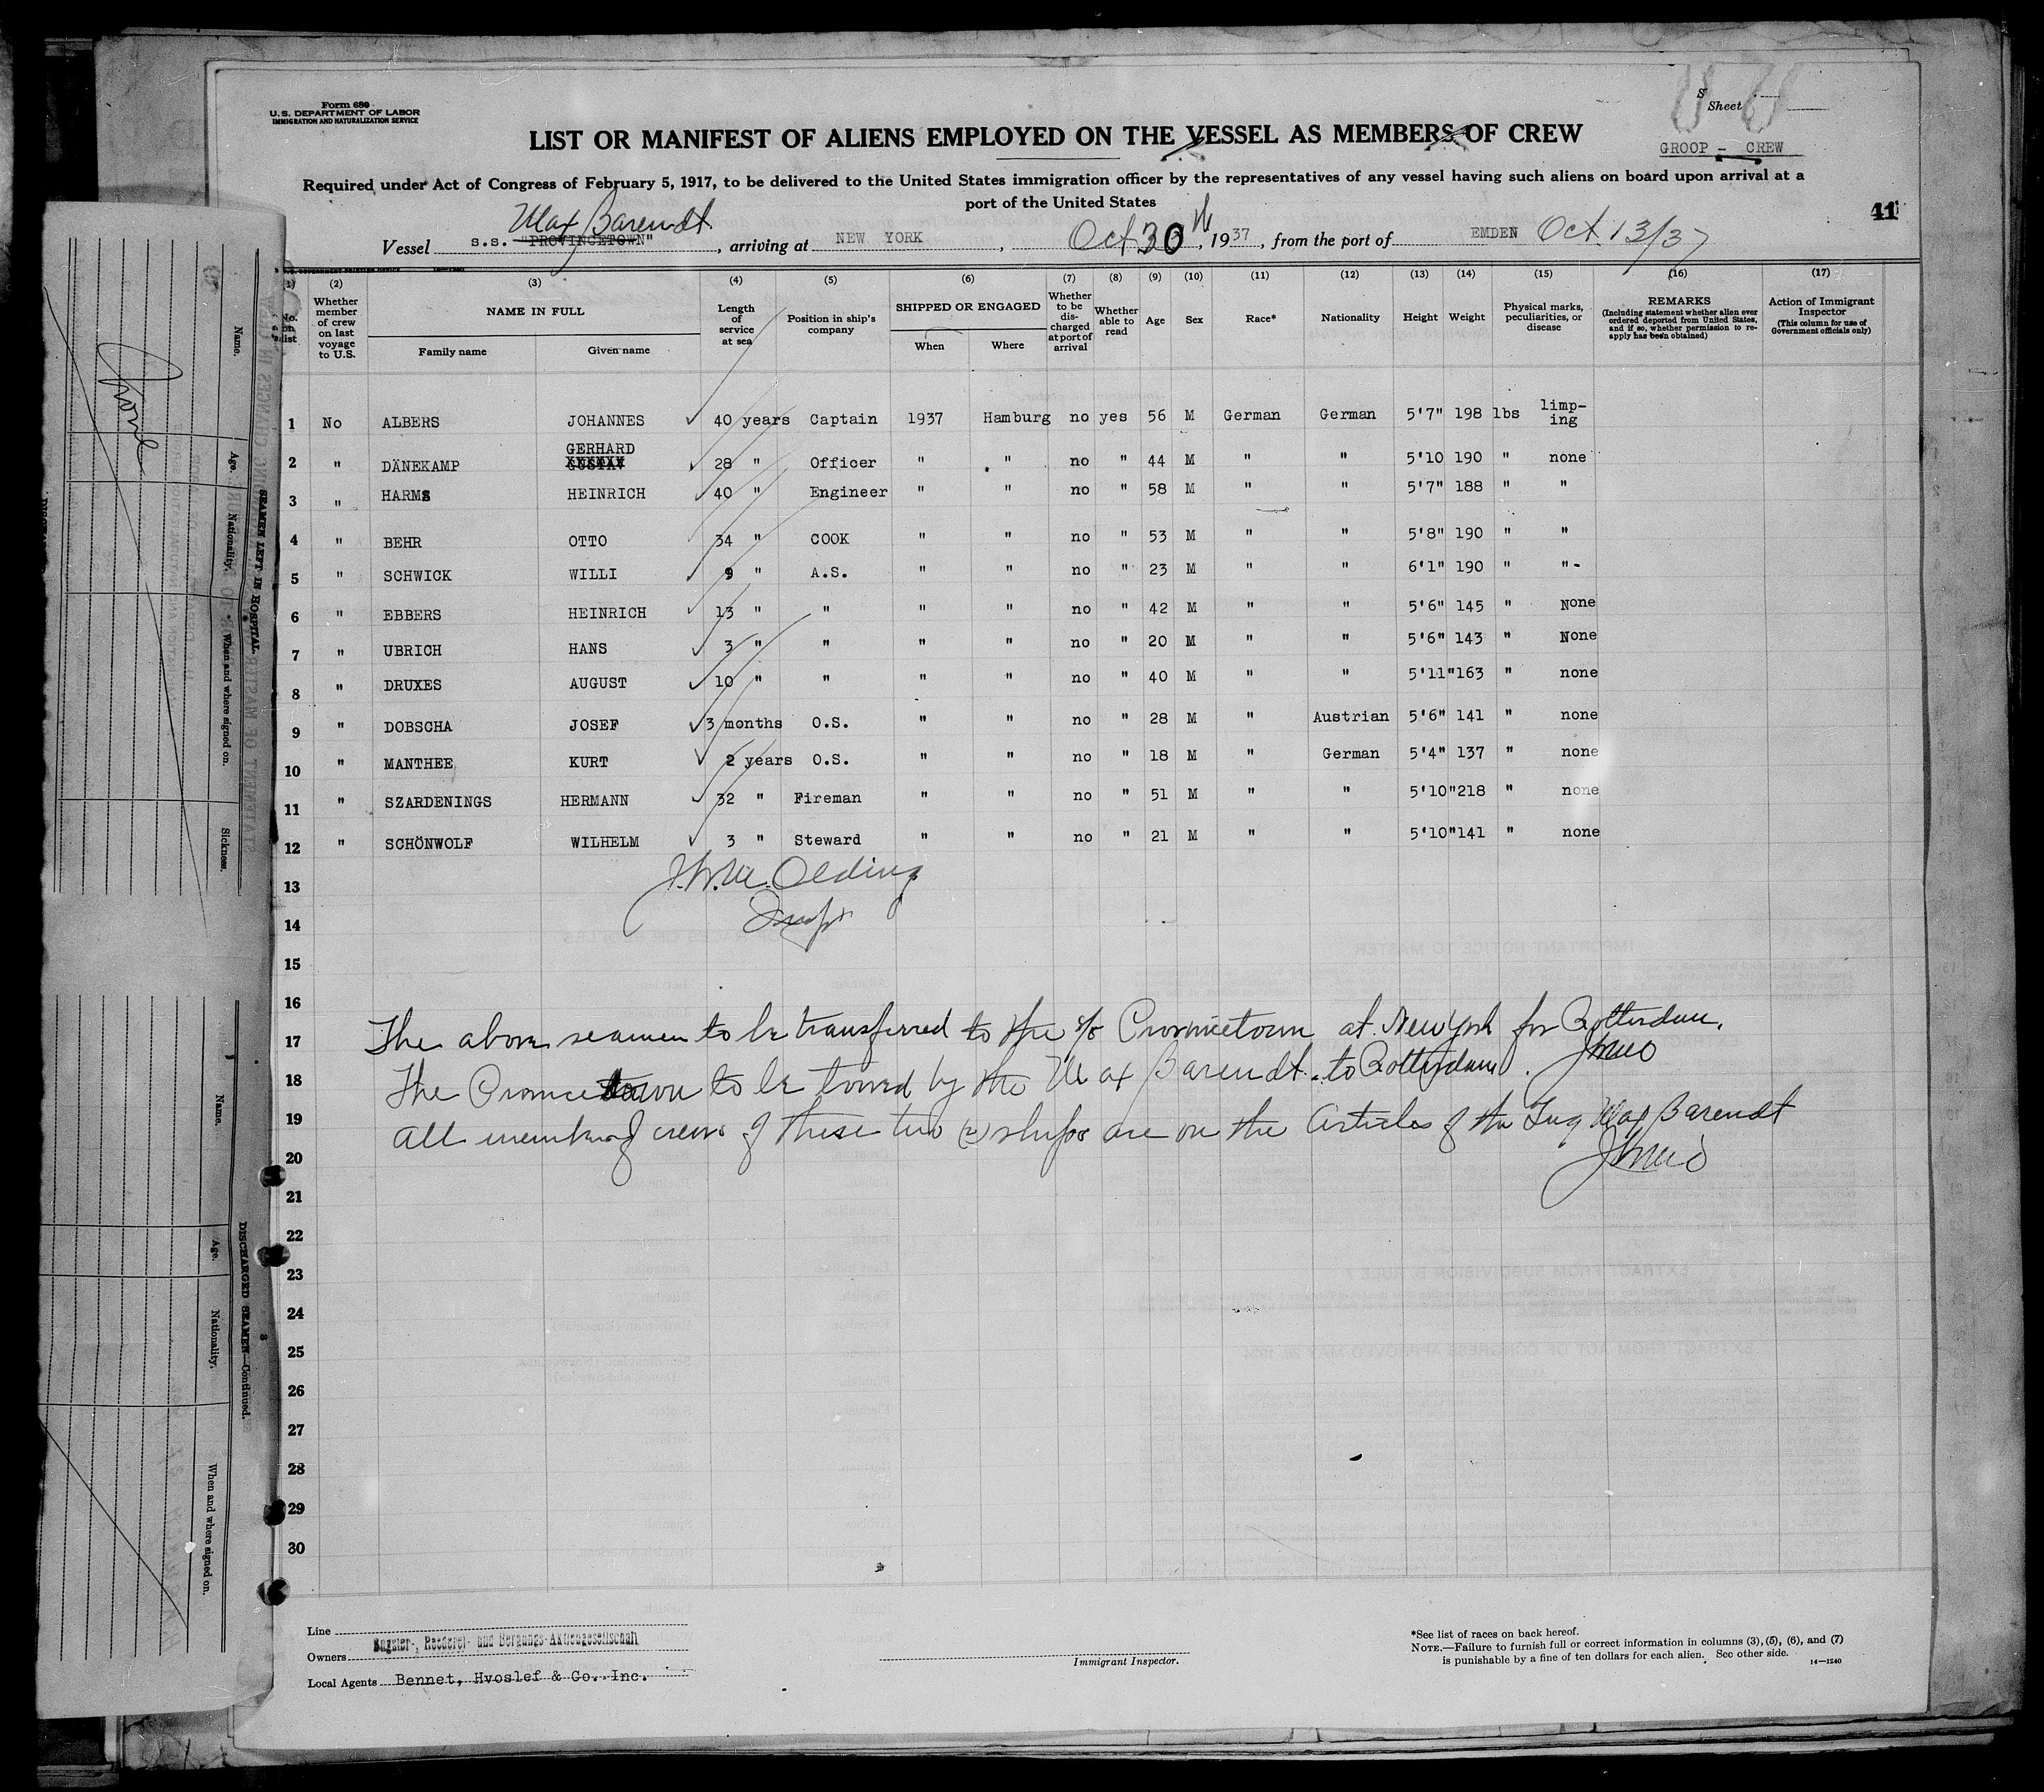 Form 680
U.S. DEPARTMENT OF LABOR
IMMIGRATION AND NATURALIZATION SERVICE
Sheet
LIST OR MANIFEST OF ALIENS EMPLOYED ON THE VESSEL AS MEMBERS OF CREW
GROOP - CREW
Required under Act of Congress of February 5, 1917, to be delivered to the United States immigration officer by the representatives of any vessel having such aliens on board upon arrival at a
port of the United States
41
Max Barendt
Vessel s.s. "PROVINCETOWN", arriving at NEW YORK, Oct 30th, 1937, from the port of EMDEN Oct. 13/37
(1) (2) (3) (4) (5) (6) (7) (8) (9) (10) (11) (12) (13) (14) (15) (16) (17)
No. on list
Whether member of crew on last voyage to U.S.
NAME IN FULL
Family name
Given name
Length of service at sea
Position in ship's company
SHIPPED OR ENGAGED
When
Where
Whether to be discharged at port of arrival
Whether able to read
Age
Sex
Race*
Nationality
Height
Weight
Physical marks, peculiarities, or disease
REMARKS
(Including statement whether alien ever ordered deported from United States, and if so, whether permission to re-apply has been obtained)
Action of Immigrant Inspector
(This column for use of Government officials only)
1 No ALBERS JOHANNES 40 years Captain 1937 Hamburg no yes 56 M German German 5'7" 198 lbs limp-ing
2 " DÄNEKAMP GERHARD GUSTAV 28 " Officer " " no " 44 M " " 5'10 190 " none
3 " HARMS HEINRICH 40 " Engineer " " no " 58 M " " 5'7" 188 " "
4 " BEHR OTTO 34 " COOK " " no " 53 M " " 5'8" 190 " "
5 " SCHWICK WILLI 9 " A.S. " " no " 23 M " " 6'1" 190 " "-
6 " EBBERS HEINRICH 13 " " " " no " 42 M " " 5'6" 145 " None
7 " UBRICH HANS 3 " " " " no " 20 M " " 5'6" 143 " None
8 " DRUXES AUGUST 10 " " " " no " 40 M " " 5'11" 163 " none
9 " DOBSCHA JOSEF 3 months O.S. " " no " 28 M " Austrian 5'6" 141 " none
10 " MANTHEE KURT 2 years O.S. " " no " 18 M " German 5'4" 137 " none
11 " SZARDENINGS HERMANN 32 " Fireman " " no " 51 M " " 5'10" 218 " none
12 " SCHÖNWOLF WILHELM 3 " Steward " " no " 21 M " " 5'10" 141 " none
13
14
15
16
17 The above seamen to be transferred to the s/s Provincetown at New York for Rotterdam.
18 The Provincetown to be towed by the Max Barendt to Rotterdam.
19 All members of crews of these two (2) ships are on the Articles of the Tug Max Barendt
20
21
22
23
24
25
26
27
28
29
30
Line
Owners Bugsier-, Reederei- und Bergungs-Aktiengesellschaft
Local Agents Bennet, Hvoslef & Co. Inc.
Immigrant Inspector.
*See list of races on back hereof.
NOTE.—Failure to furnish full or correct information in columns (3), (5), (6), and (7)
is punishable by a fine of ten dollars for each alien. See other side.
14—1240
SEAMEN LEFT IN HOSPITAL.
Name.
Age.
Nationality.
When and where signed on.
Sickness.
DISCHARGED SEAMEN—Continued.
Name.
Age.
Nationality.
When and where signed on.